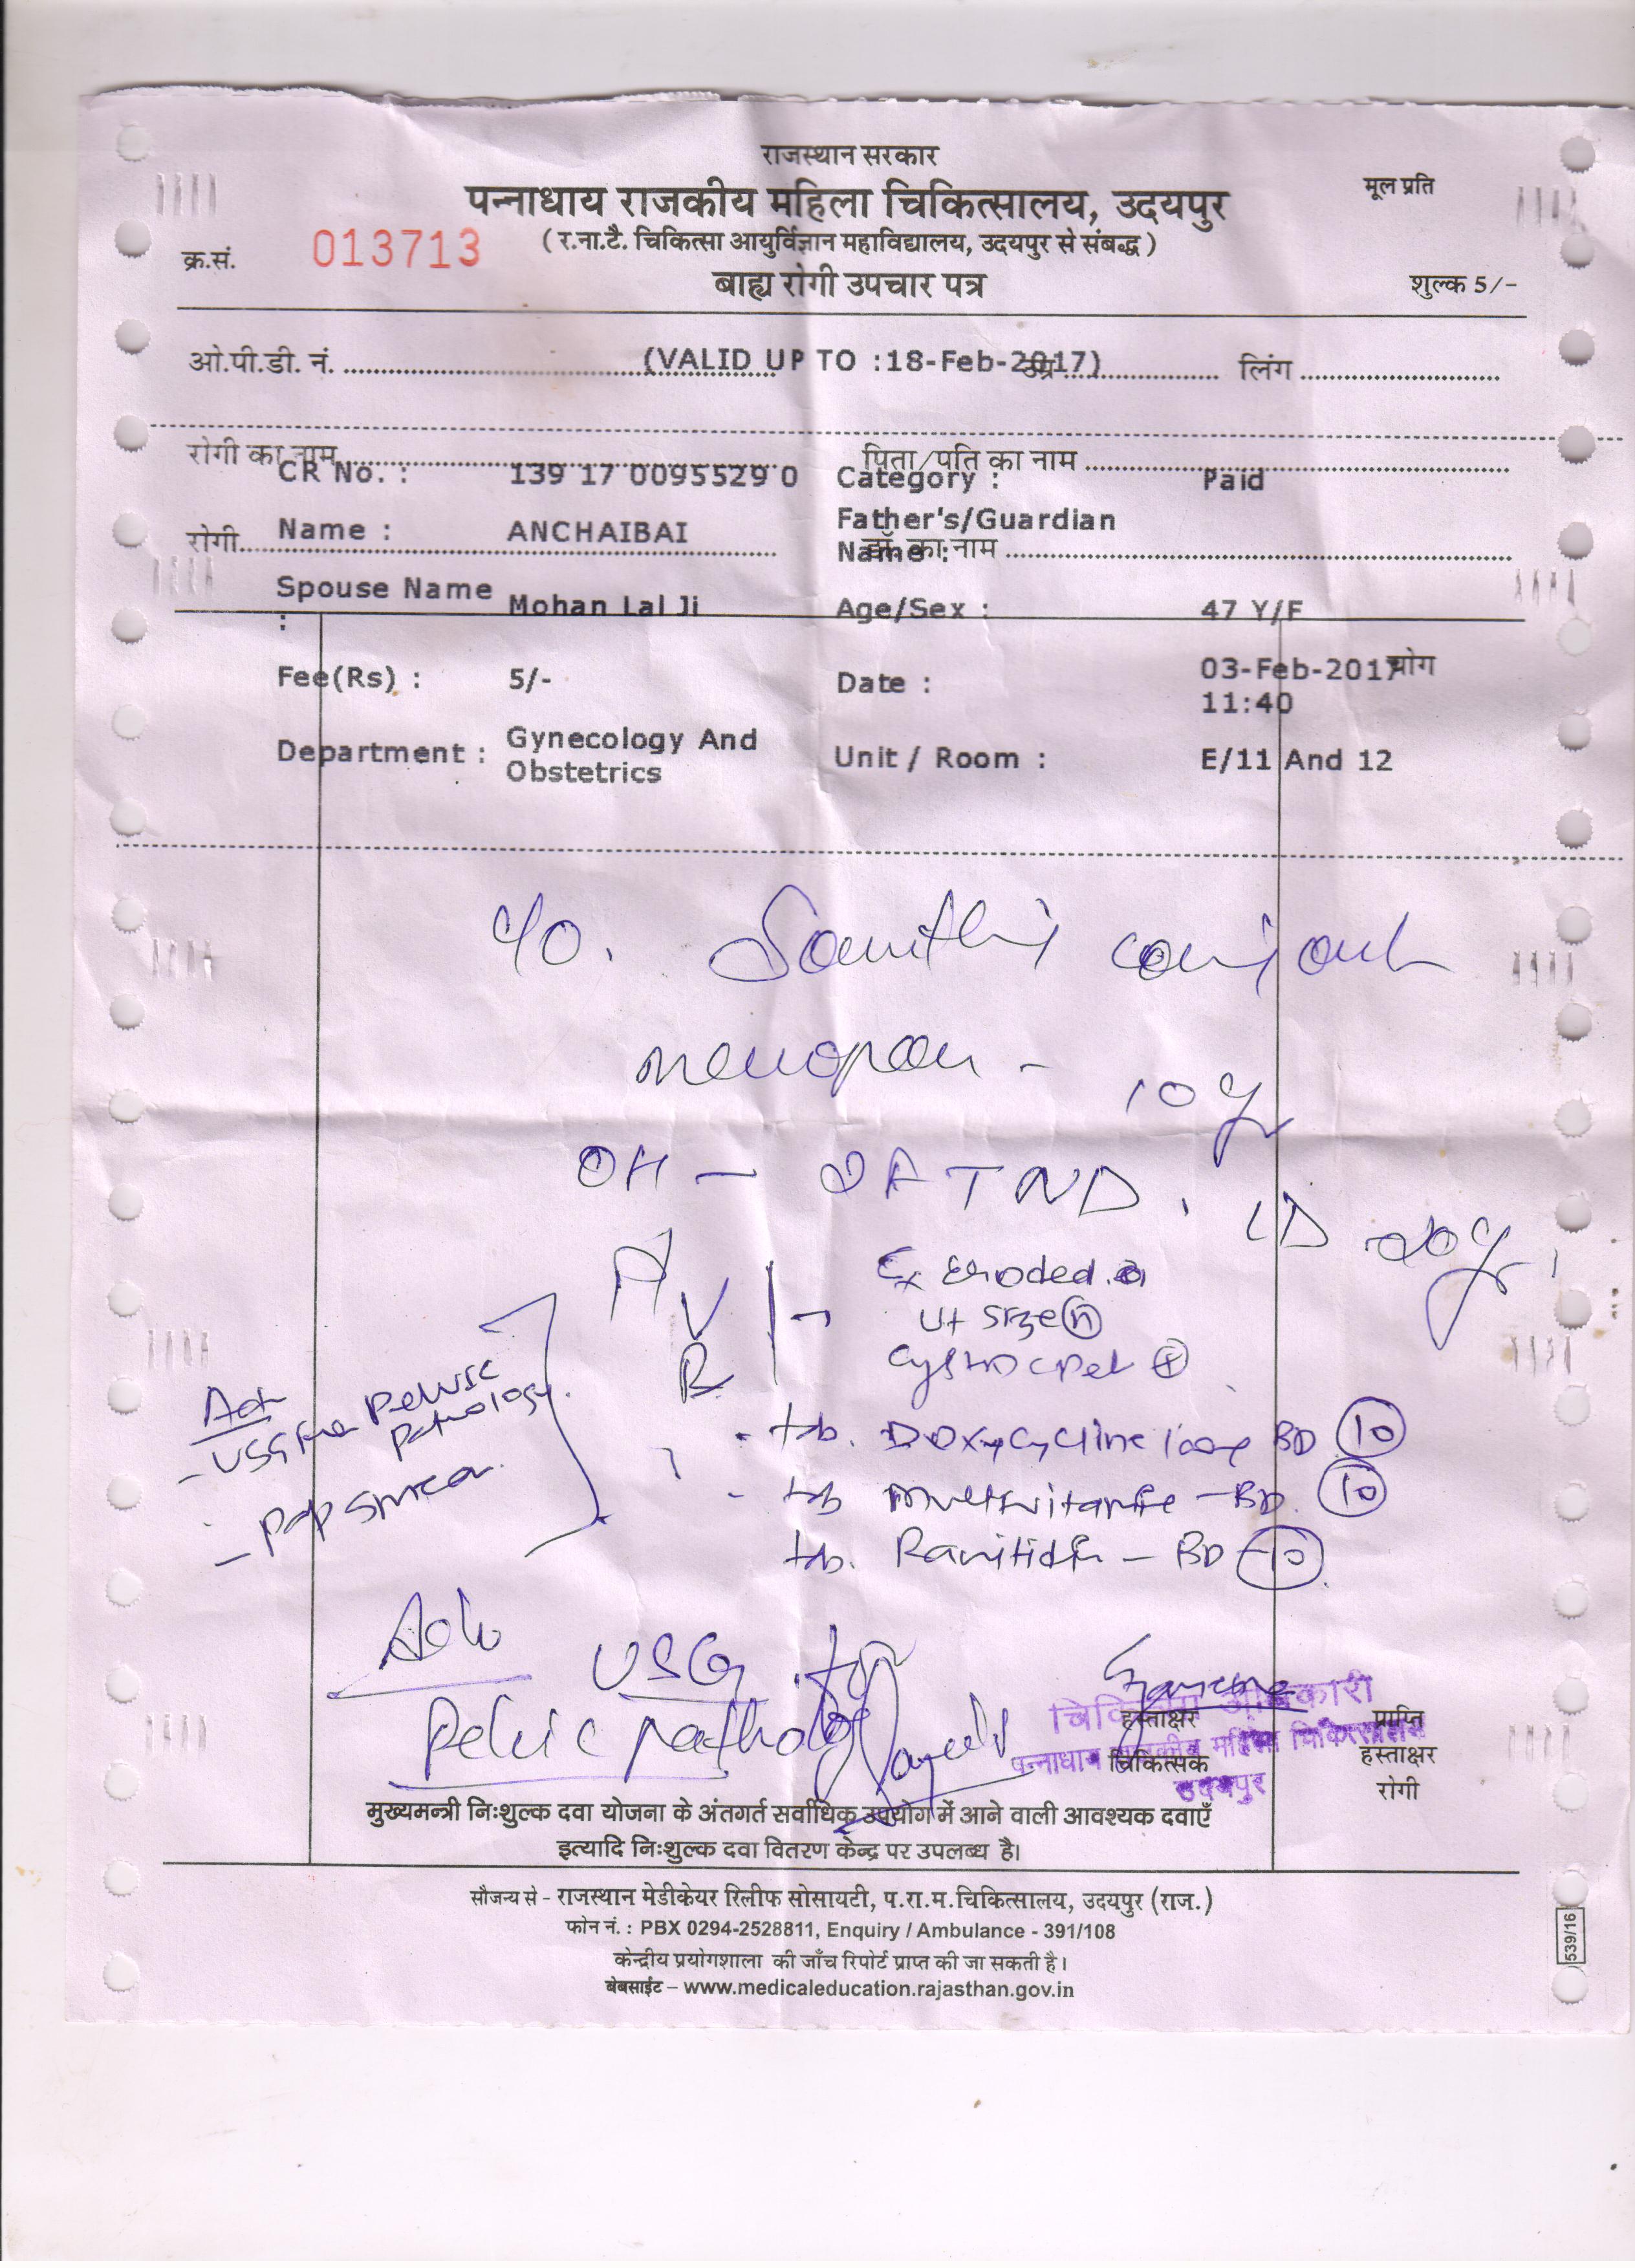 राजस्थान सरकार
मूल प्रति
पन्नाधाय राजकीय महिला चिकित्सालय, उदयपुर
क्र.सं. 013713
( र.ना.टै. चिकित्सा आयुर्विज्ञान महाविद्यालय, उदयपुर से संबद्ध )
बाह्य रोगी उपचार पत्र
शुल्क 5/-
ओ.पी.डी. नं. (VALID UP TO :18-Feb-2017) उम्र लिंग
रोगी का नाम पिता/पति का नाम
CR No. : 139 17 0095529 0 Category : Paid
Name : ANCHAIBAI Father's/Guardian Name :
रोगी डॉ. का नाम
Spouse Name : Mohan Lal Ji Age/Sex : 47 Y/F
Fee(Rs) : 5/- Date : 03-Feb-2017 11:40
योग
Department : Gynecology And Obstetrics Unit / Room : E/11 And 12
c/o. Something coming out
10 yr
OH - 2FTND, LD 20yr
Cx Eroded
Ut size (n)
(+)
Adv
- USG for Pelvic Pathology.
- Pap smear
tab. Doxycycline 100mg BD (10)
tab Multivitamin - BD. (10)
tab. Ranitidin - BD (10)
Adv USG for
Pelvic Pathology
चिकित्सा अधिकारी
पन्नाधाय राजकीय महिला चिकित्सालय
उदयपुर
हस्ताक्षर
चिकित्सक
प्राप्ति
हस्ताक्षर
रोगी
मुख्यमन्त्री निःशुल्क दवा योजना के अंतगर्त सर्वाधिक उपयोग में आने वाली आवश्यक दवाएँ
इत्यादि निःशुल्क दवा वितरण केन्द्र पर उपलब्ध है।
सौजन्य से - राजस्थान मेडीकेयर रिलीफ सोसायटी, प.रा.म.चिकित्सालय, उदयपुर (राज.)
फोन नं. : PBX 0294-2528811, Enquiry / Ambulance - 391/108
केन्द्रीय प्रयोगशाला की जाँच रिपोर्ट प्राप्त की जा सकती है।
बेबसाईट – www.medicaleducation.rajasthan.gov.in
539/16